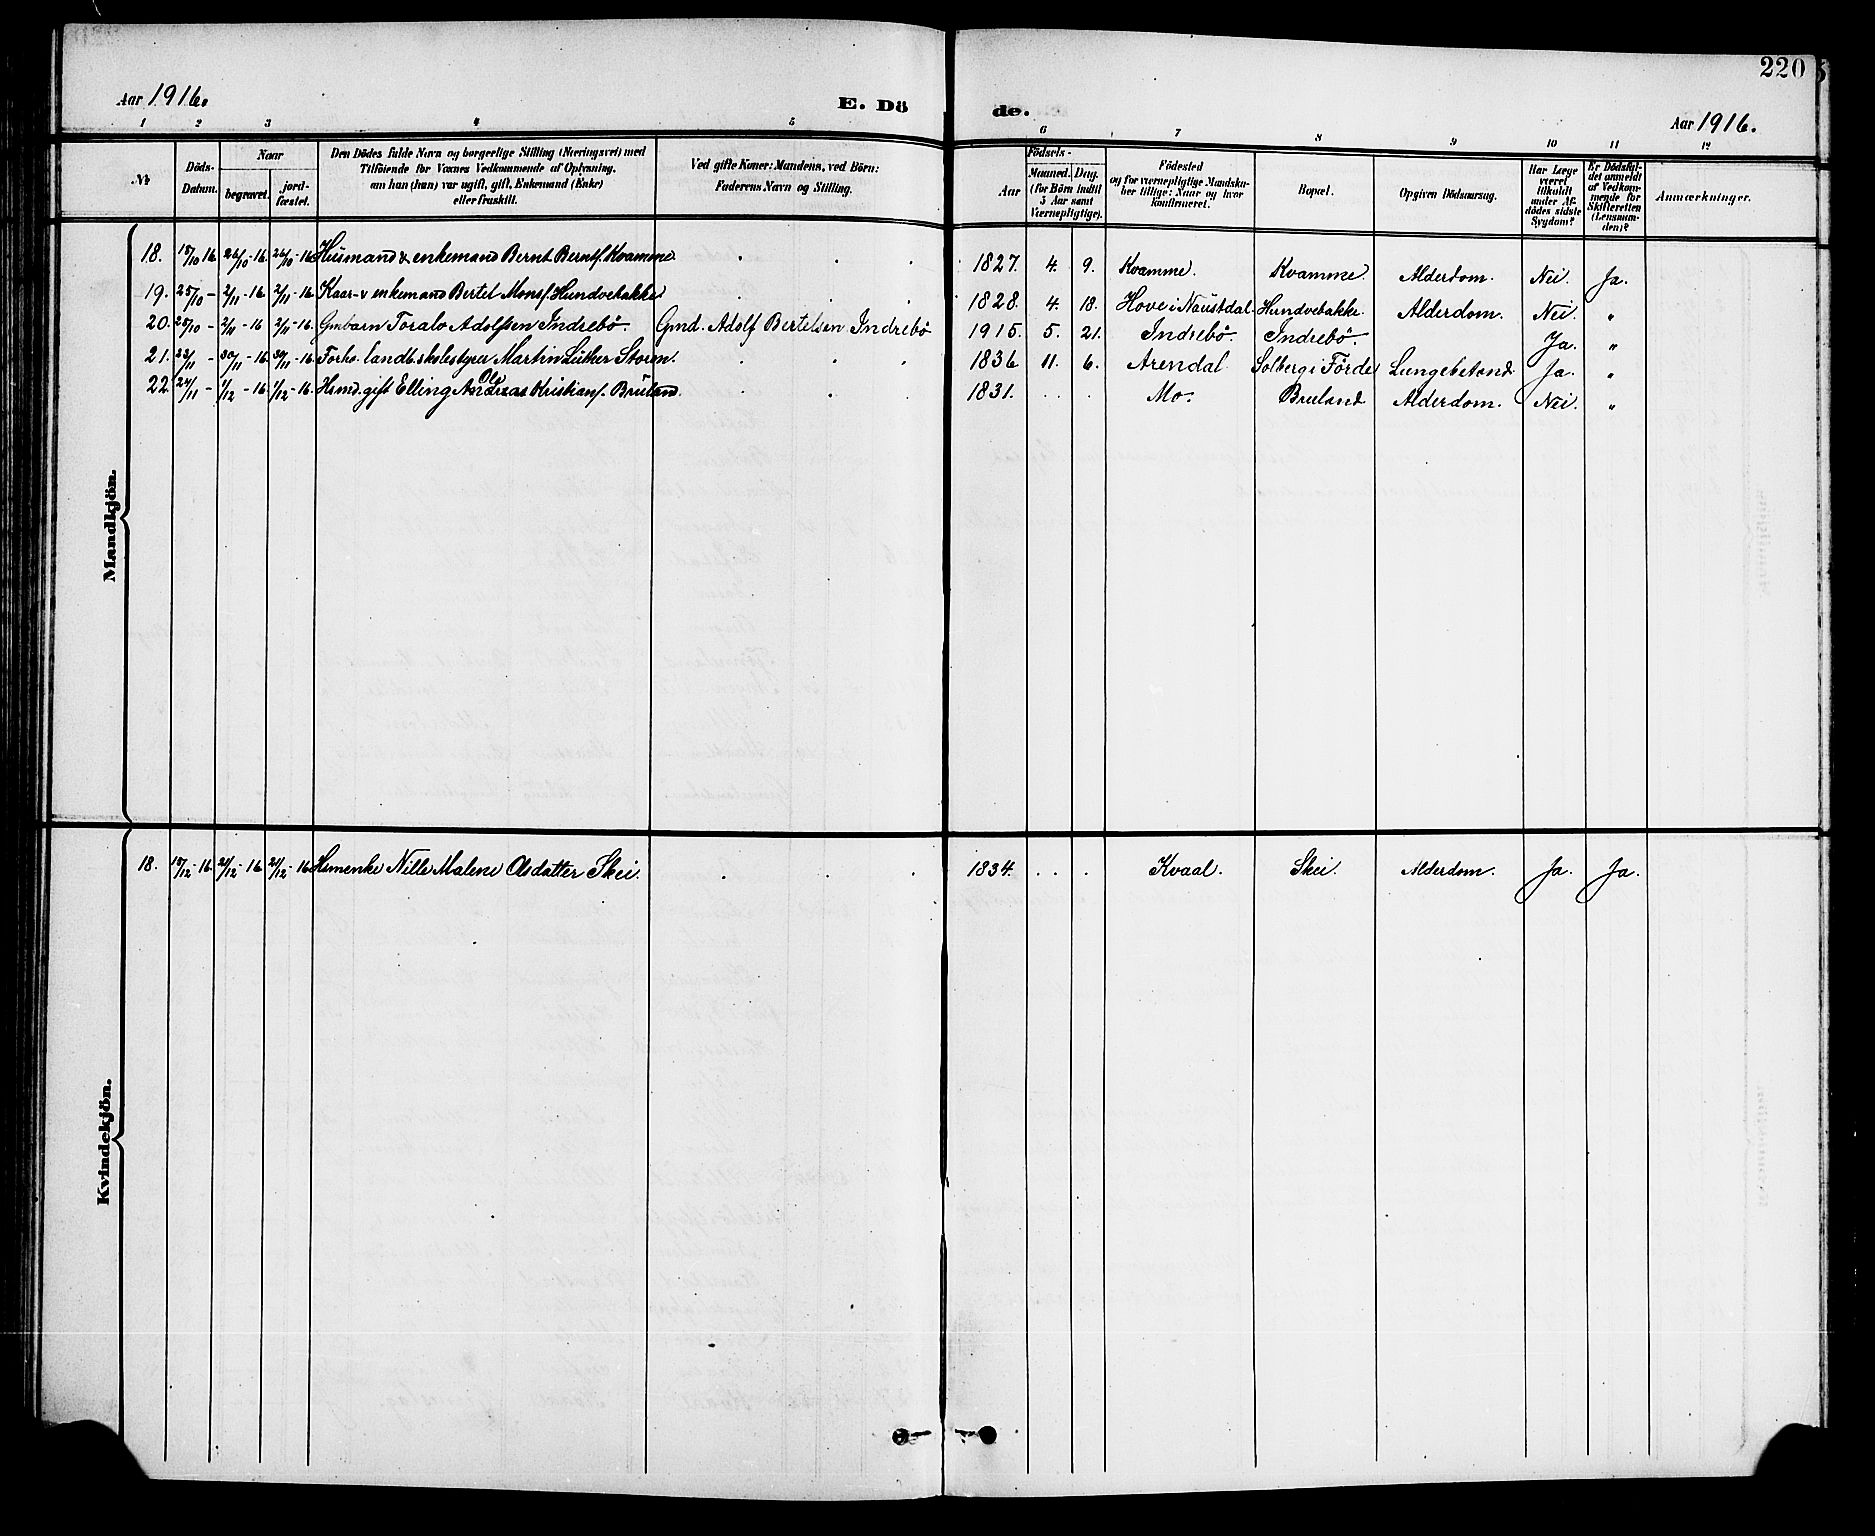 220
Aar 1916.
E. Dö de.
Aar 1916.
1 2 3 4 5 6 7 8 9 10 11 12
№
Döds-Datum.
Naar
begravet.
jord-fæstet.
Den Dödes fulde Navn og borgerlige Stilling (Næringsvei) med
Tilföiende for Voxnes Vedkommende af Oplysning,
om han (hun) var ugift, gift, Enkemand (Enke)
eller fraskilt.
Ved gifte Koner: Mandens, ved Börn:
Faderens Navn og Stilling.
Födsels-
Aar
Maaned. Dag.
(for Börn indtil
5 Aar samt
Værnepligtige).
Födested
og for værnepligtige Mandska-
ber tillige: Naar og hvor
konfirmeret.
Bopæl.
Opgiven Dödsaarsag.
Har Læge
været
tilkaldt
under Af-
dödes sidste
Sygdom?
Er Dödsfal-
det anmeldt
af Vedkom-
mende for
Skifteretten
(Lensman-
den)?
Anmærkninger.
Mandkjön.
18. 18/10 16. 26/10-16. 26/10-16. Husmand & enkemand Bernt Berntf. Kvamme. 1827. 4. 9. Kvamme. Kvamme. Alderdom. Nei. Ja.
19. 25/10 - 2/11-16 2/11-16. Kaar- & enkemand Bertel Monsf. Hundvebakke 1828. 4. 18. Hove i Naustdal. Hundvebakke. Alderdom. Nei. "
20. 25/10 - 2/11-16 2/11-16. Gmbarn Toralv Adolfsen Indrebö. Gmd. Adolf Bertelsen Indrebö 1915. 5. 21. Indrebö. Indrebö. Ja. "
21. 23/11 - 30/11-16. 30/11-16. Forhv. landb.skolestyrer Martin Luther Storm. 1836. 11. 6. Arendal. Solberg i Förde Lungebetænd. Ja. "
22. 24/11 - 1/12-16 1/12-16. Hsmd. gift Elling Andreas Ole Kristianf. Bruland. 1831. Mo. Bruland. Alderdom. Nei. "
Kvindekjön.
18. 15/12-16. 21/12-16 21/12-16. Hsmenke Nille Malene Olsdatter Skei. 1834. Kvaal. Skei. Alderdom. Ja. Ja.